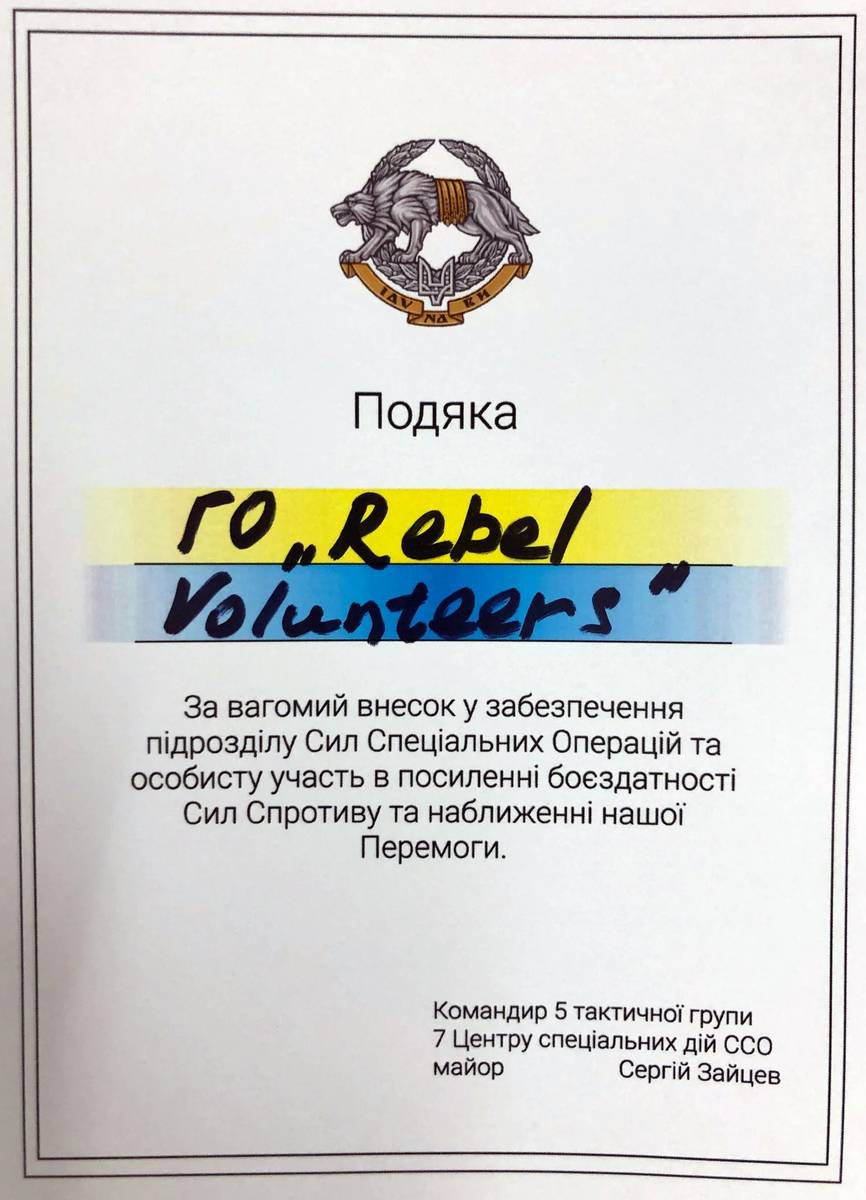 ІДУ НА ВИ
Подяка
ГО „Rebel
Volunteers"
За вагомий внесок у забезпечення
підрозділу Сил Спеціальних Операцій та
особисту участь в посиленні боєздатності
Сил Спротиву та наближенні нашої
Перемоги.
Командир 5 тактичної групи
7 Центру спеціальних дій ССО
майор Сергій Зайцев